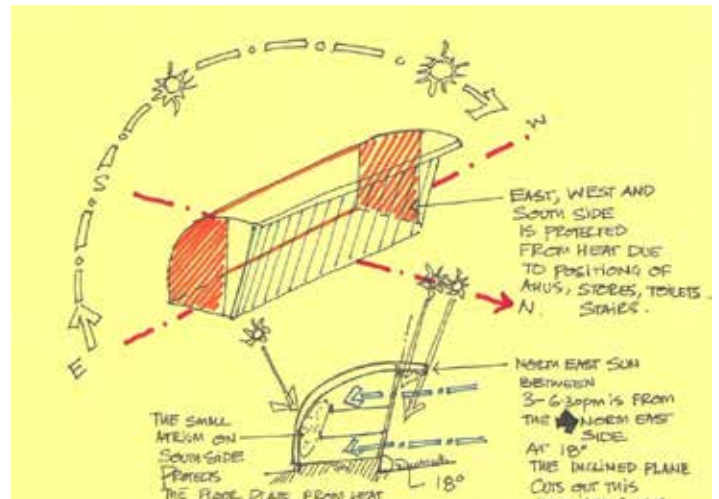 S
W
E
N
EAST, WEST AND
SOUTH SIDE
IS PROTECTED
FROM HEAT DUE
TO POSITIONG OF
AHUS, STORES, TOILETS
STAIRS.
NORTH EAST SUN
BETWEEN
3-6:30pm IS FROM
THE NORTH EAST
SIDE
AT 18°
THE INCLINED PLANE
CUTS OUT THIS
THE SMALL
ATRISM ON
SOUTH SIDE
PROTECTS
THE FLOOR PLATE FROM HEAT
18°